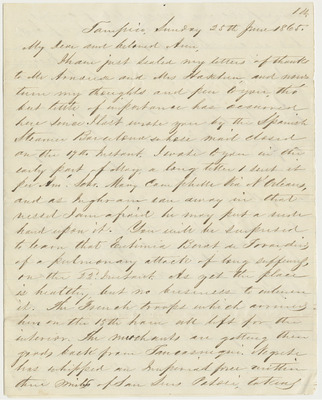 Tampico, Sunday 25th June 1865.
My Dear and beloved Ann.
I have just sealed my letters of thanks
to Mr Andrews and Mrs and now
turn my thoughts and pen to you, tho
but little of importance has occurred
here since I last wrote you by the Spanish
Steamer Barcelona whose mail closed
on the 17th Instant. I wrote to you in the
early part of May a long letter & sent it
per Am. Sch. Mary Campbelle via N Orleans,
and as ran away in that
vessel I am afraid he may put a rude
hand upon it. You will be surprised
to learn that Antonia Borst de died
of a pulmonary attack of long suffering
on the 22d Instant. As yet the place
is healthy but no business to enliven
it. The French troops which arrived
here on the 15th have all left for the
interior. The merchants are getting their
goods back from Tancasneque. Ugalde
has whipped an Imperial free within
three miles of San Luis Potosi, taking